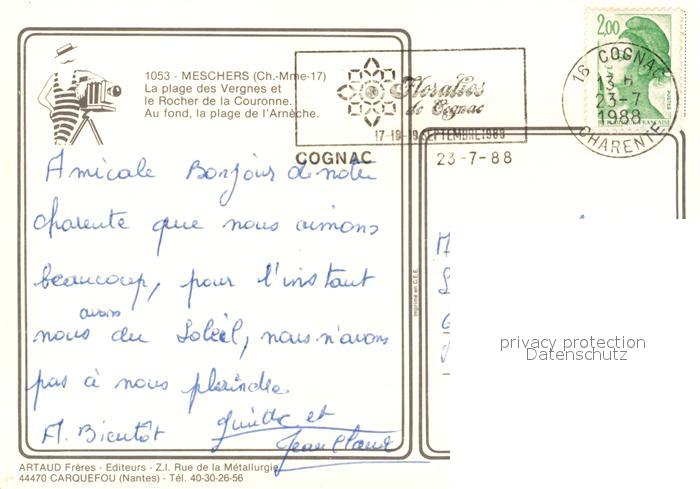 1053 - MESCHERS (Ch.-Mme-17)
La plage des Vergnes et
le Rocher de la Couronne.
Au fond, la plage de l'Arnèche.
Floralies
de Cognac
17-18-19 SEPTEMBRE 1988
COGNAC
23-7-88
2,00
16 COGNAC
13 H
23-7
1988
CHARENTE
Amicale Bonjour de notre
charente que nous aimons
beaucoup, pour l'instant
avons
nous du Soleil, nous n'avons
pas à nous plaindre
A. Bientôt
et
Jean Claude
Imprimé en C.E.E.
privacy protection
Datenschutz
ARTAUD Frères - Editeurs - Z.I. Rue de la Métallurgie
44470 CARQUEFOU (Nantes) - Tél. 40-30-26-56